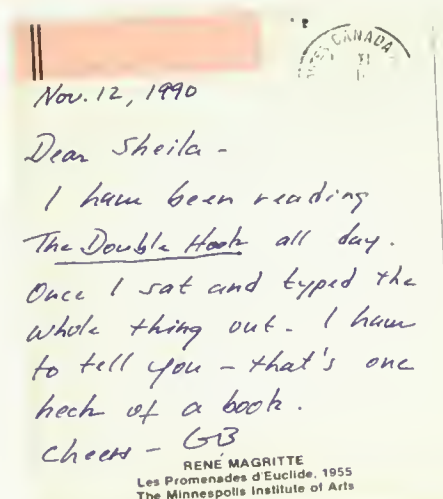 CANADA
Nov. 12, 1990
Dear Sheila -
I have been reading
The Double Hook all day.
Once I sat and typed the
whole thing out. I have
to tell you - that's one
heck of a book.
Cheers - GB
RENÉ MAGRITTE
Les Promenades d'Euclide, 1955
The Minneapolis Institute of Arts